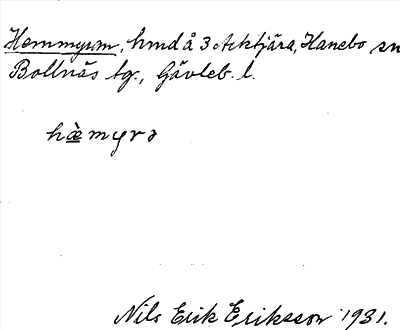 Hemmyran, hmd å 3 Acktjära, Hanebo sn
Bollnäs tg., Gävleb. l.
hæ̀myrə
Nils Erik Eriksson 1931.